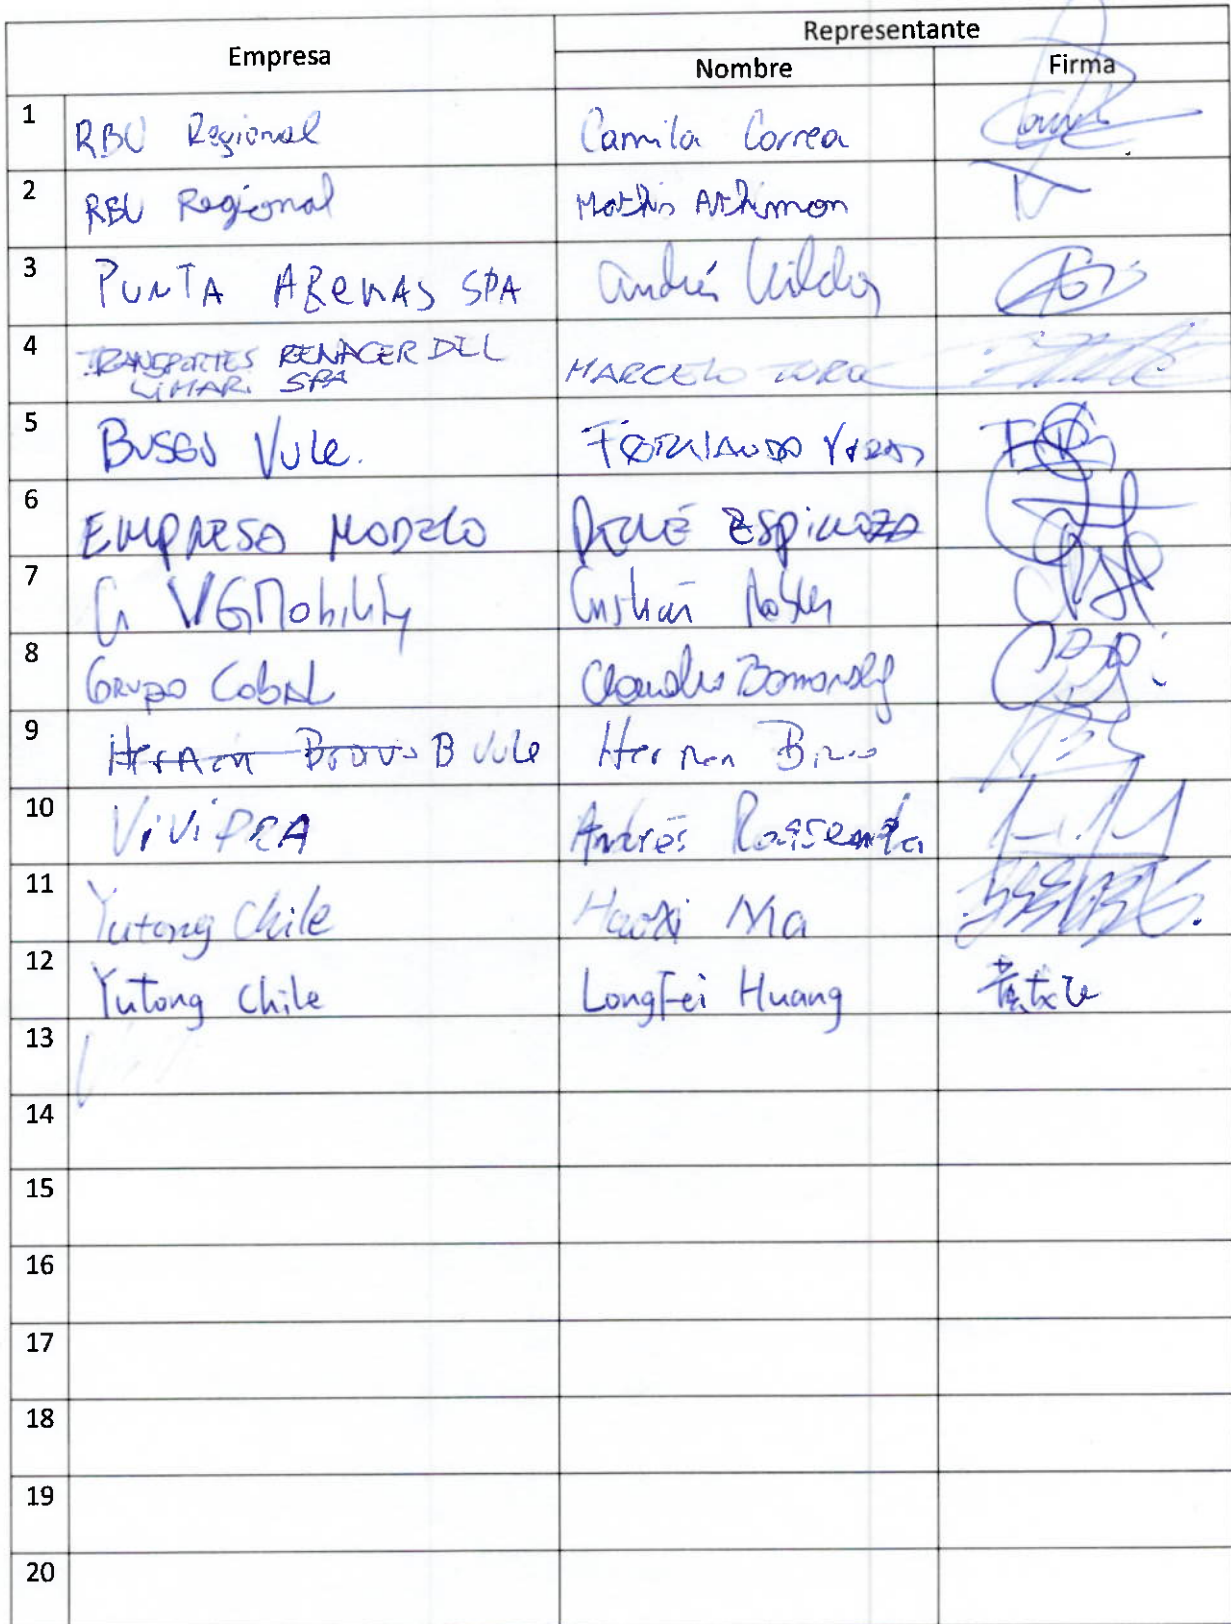 Representante
Empresa
Nombre Firma
1 RBU Regional Camila Correa
2 RBU Regional Mathis Athimon
3 PUNTA ARENAS SPA Andrés
4 TRANSPORTES RENACER DEL
LIMARI SPA MARCELO
5 BUSES Vule. FERNANDO
6 EMPRESA MODELO RENÉ ESPINOZA
7 VGMobility Cristián Robles
8 GRUPO Cobal Claudio
9 Hernan Bravo B Vule Hernan
10 ViVIPRA Andrés
11 Yutong Chile Haoxi Ma
12 Yutong Chile LongFei Huang
13
14
15
16
17
18
19
20